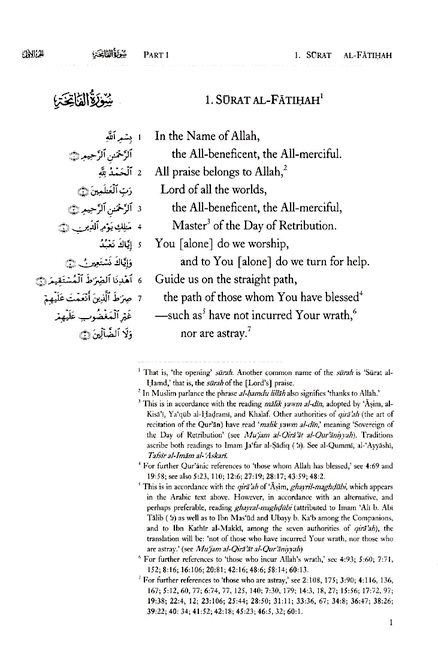 الجزء الأول سُورَةُ الفَاتِحَة PART 1 1. SŪRAT AL-FĀTIḤAH
سُورَةُ الفَاتِحَة 1. SŪRAT AL-FĀTIḤAH¹
بِسْمِ ٱللَّهِ 1 In the Name of Allah,
ٱلرَّحْمَٰنِ ٱلرَّحِيمِ ۝ the All-beneficent, the All-merciful.
ٱلْحَمْدُ لِلَّهِ 2 All praise belongs to Allah,²
رَبِّ ٱلْعَٰلَمِينَ ۝ Lord of all the worlds,
ٱلرَّحْمَٰنِ ٱلرَّحِيمِ ۝ 3 the All-beneficent, the All-merciful,
مَٰلِكِ يَوْمِ ٱلدِّينِ ۝ 4 Master³ of the Day of Retribution.
إِيَّاكَ نَعْبُدُ 5 You [alone] do we worship,
وَإِيَّاكَ نَسْتَعِينُ ۝ and to You [alone] do we turn for help.
ٱهْدِنَا ٱلصِّرَٰطَ ٱلْمُسْتَقِيمَ ۝ 6 Guide us on the straight path,
صِرَٰطَ ٱلَّذِينَ أَنْعَمْتَ عَلَيْهِمْ 7 the path of those whom You have blessed⁴
غَيْرِ ٱلْمَغْضُوبِ عَلَيْهِمْ —such as⁵ have not incurred Your wrath,⁶
وَلَا ٱلضَّآلِّينَ ۝ nor are astray.⁷
¹ That is, 'the opening' sūrah. Another common name of the sūrah is 'Sūrat al-
Ḥamd,' that is, the sūrah of the [Lord's] praise.
² In Muslim parlance the phrase al-ḥamdu lillāh also signifies 'thanks to Allah.'
³ This is in accordance with the reading mālik yawm al-dīn, adopted by 'Āṣim, al-
Kisā'ī, Ya'qūb al-Ḥaḍramī, and Khalaf. Other authorities of qirā'ah (the art of
recitation of the Qur'ān) have read 'malik yawm al-dīn,' meaning 'Sovereign of
the Day of Retribution' (see Mu'jam al-Qirā'āt al-Qur'āniyyah). Traditions
ascribe both readings to Imam Ja'far al-Ṣādiq ('a). See al-Qummī, al-'Ayyāshī,
Tafsīr al-Imām al-'Askarī.
⁴ For further Qur'ānic references to 'those whom Allah has blessed,' see 4:69 and
19:58; see also 5:23, 110; 12:6; 27:19; 28:17; 43:59; 48:2.
⁵ This is in accordance with the qirā'ah of 'Āṣim, ghayril-maghḍūbi, which appears
in the Arabic text above. However, in accordance with an alternative, and
perhaps preferable, reading ghayral-maghḍūbi (attributed to Imam 'Ali b. Abi
Ṭālib ('a) as well as to Ibn Mas'ūd and Ubayy b. Ka'b among the Companions,
and to Ibn Kathīr al-Makkī, among the seven authorities of qirā'ah), the
translation will be: 'not of those who have incurred Your wrath, nor those who
are astray.' (see Mu'jam al-Qirā'āt al-Qur'āniyyah)
⁶ For further references to 'those who incur Allah's wrath,' see 4:93; 5:60; 7:71,
152; 8:16; 16:106; 20:81; 42:16; 48:6; 58:14; 60:13.
⁷ For further references to 'those who are astray,' see 2:108, 175; 3:90; 4:116, 136,
167; 5:12, 60, 77; 6:74, 77, 125, 140; 7:30, 179; 14:3, 18, 27; 15:56; 17:72, 97;
19:38; 22:4, 12; 23:106; 25:44; 28:50; 31:11; 33:36, 67; 34:8; 36:47; 38:26;
39:22; 40: 34; 41:52; 42:18; 45:23; 46:5, 32; 60:1.
1